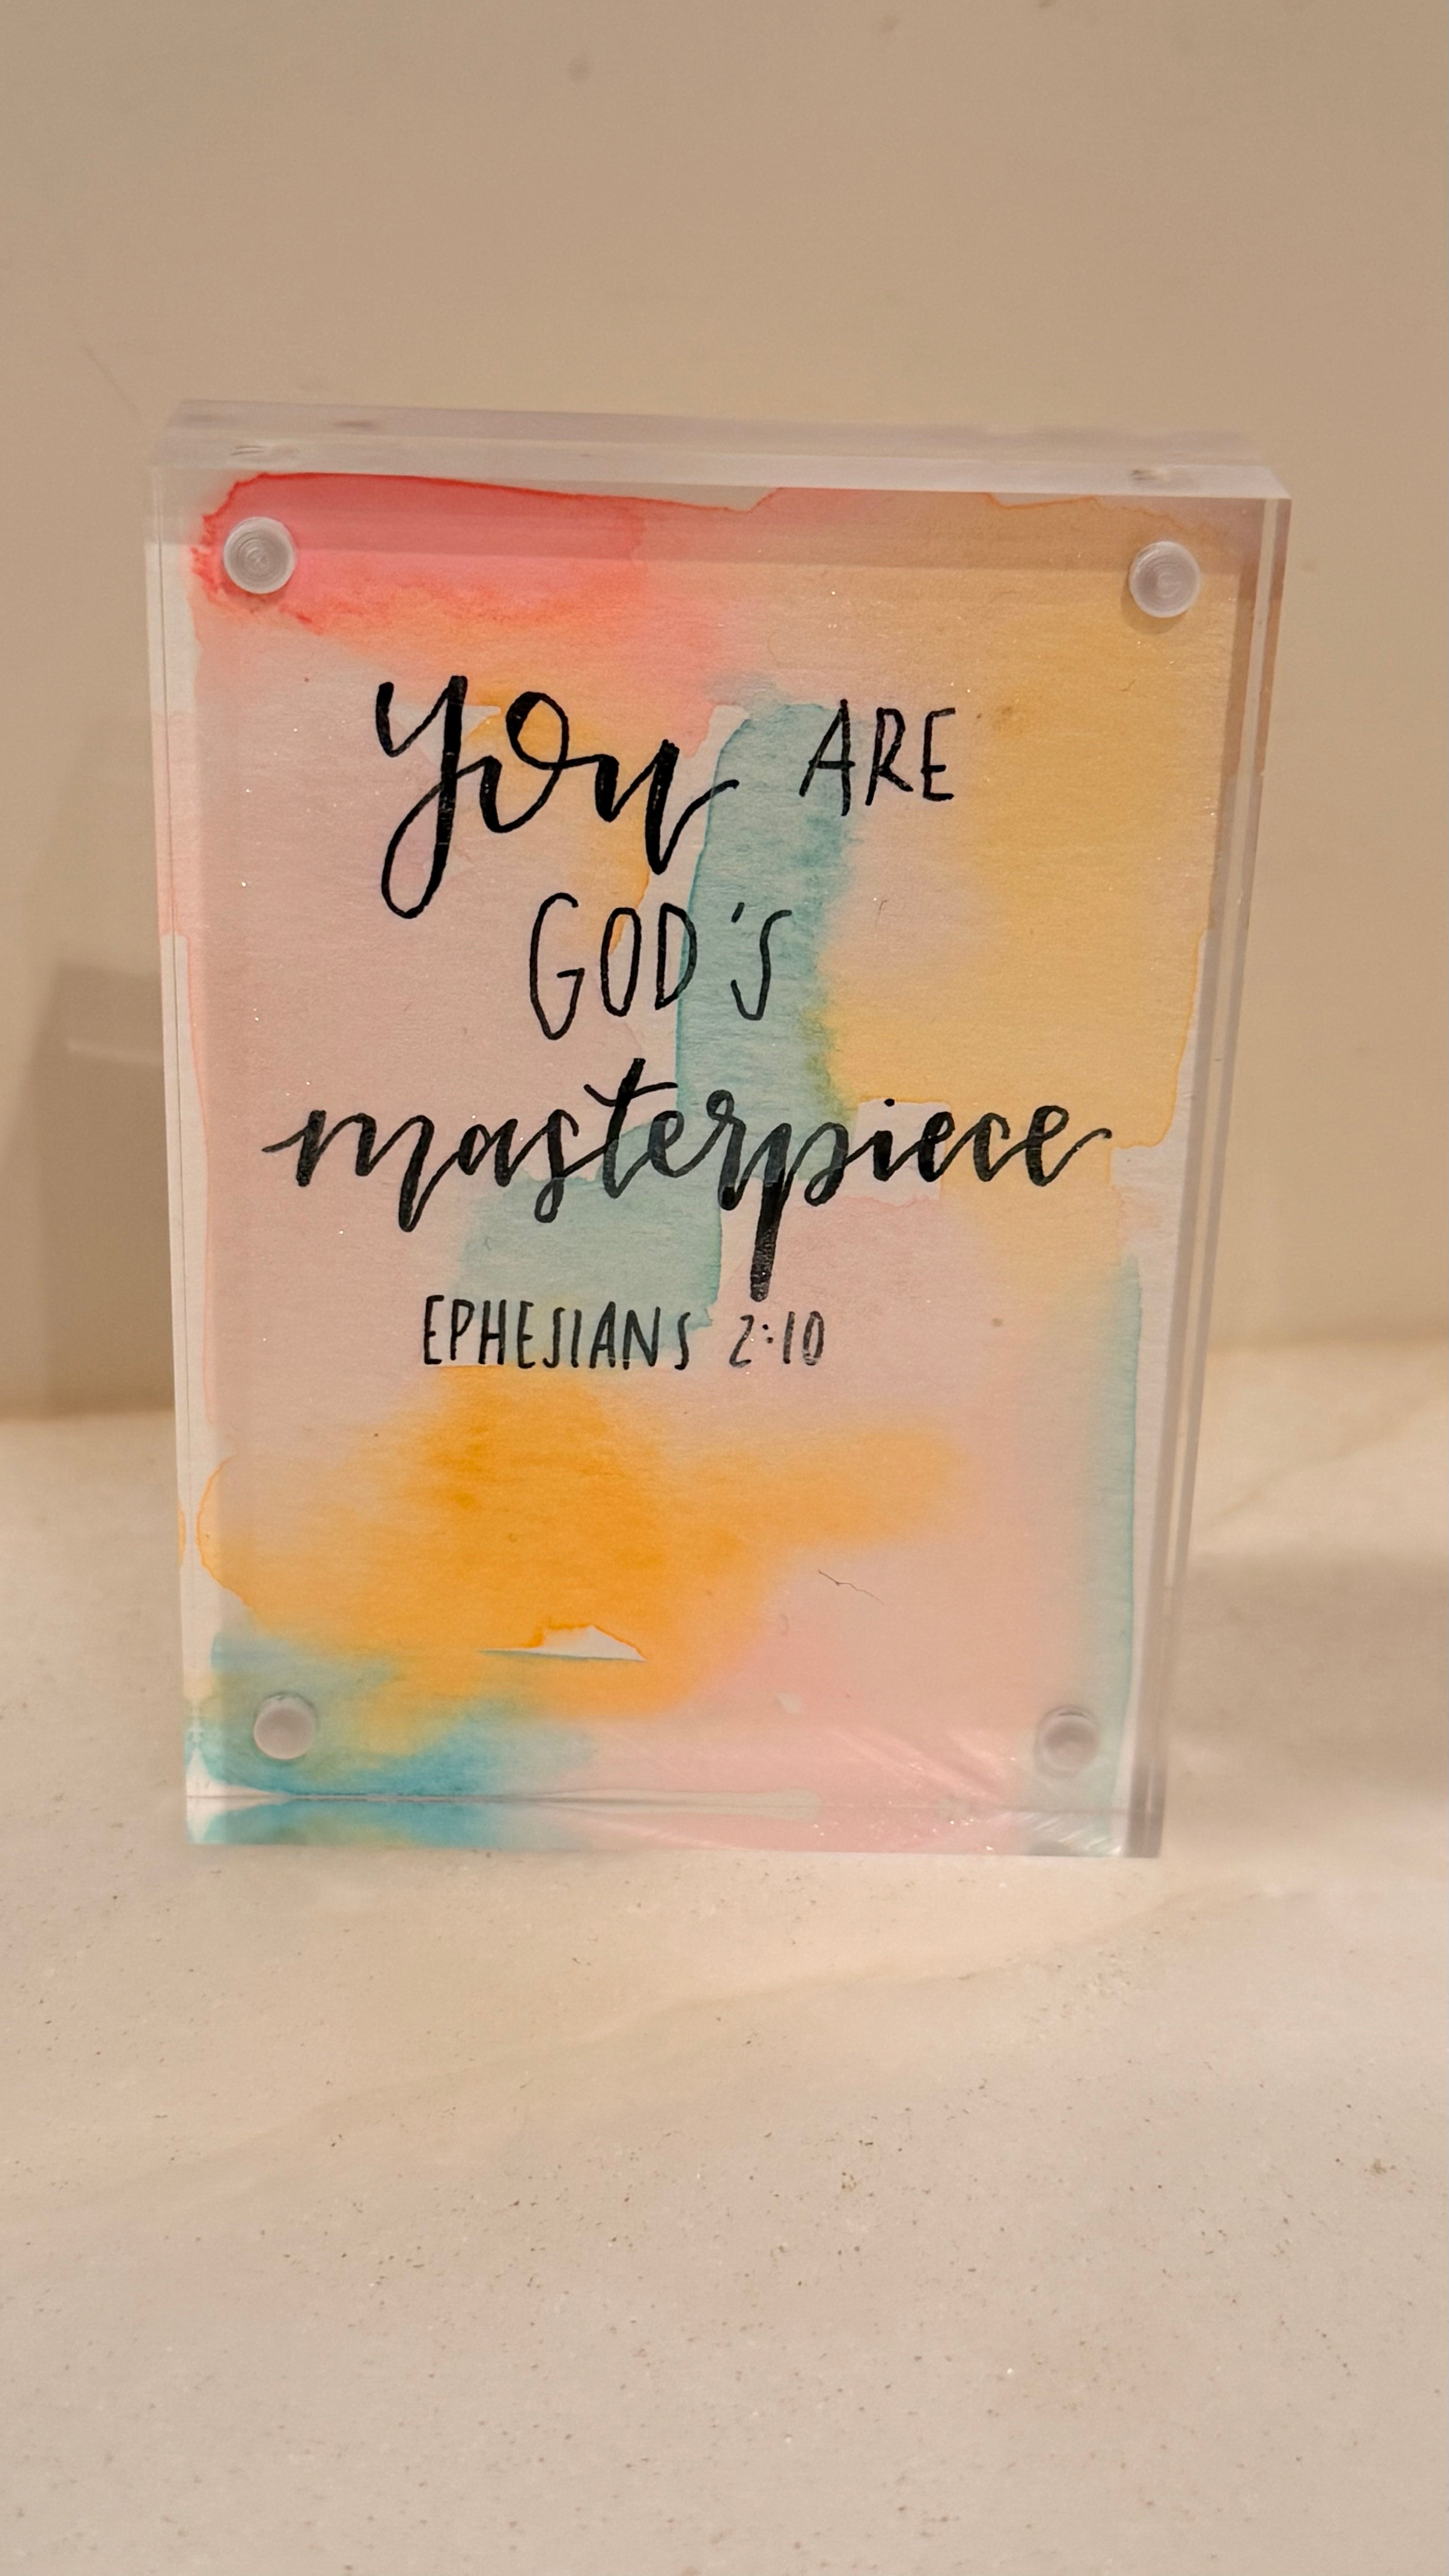 you ARE
GOD'S
masterpiece
EPHESIANS 2:10